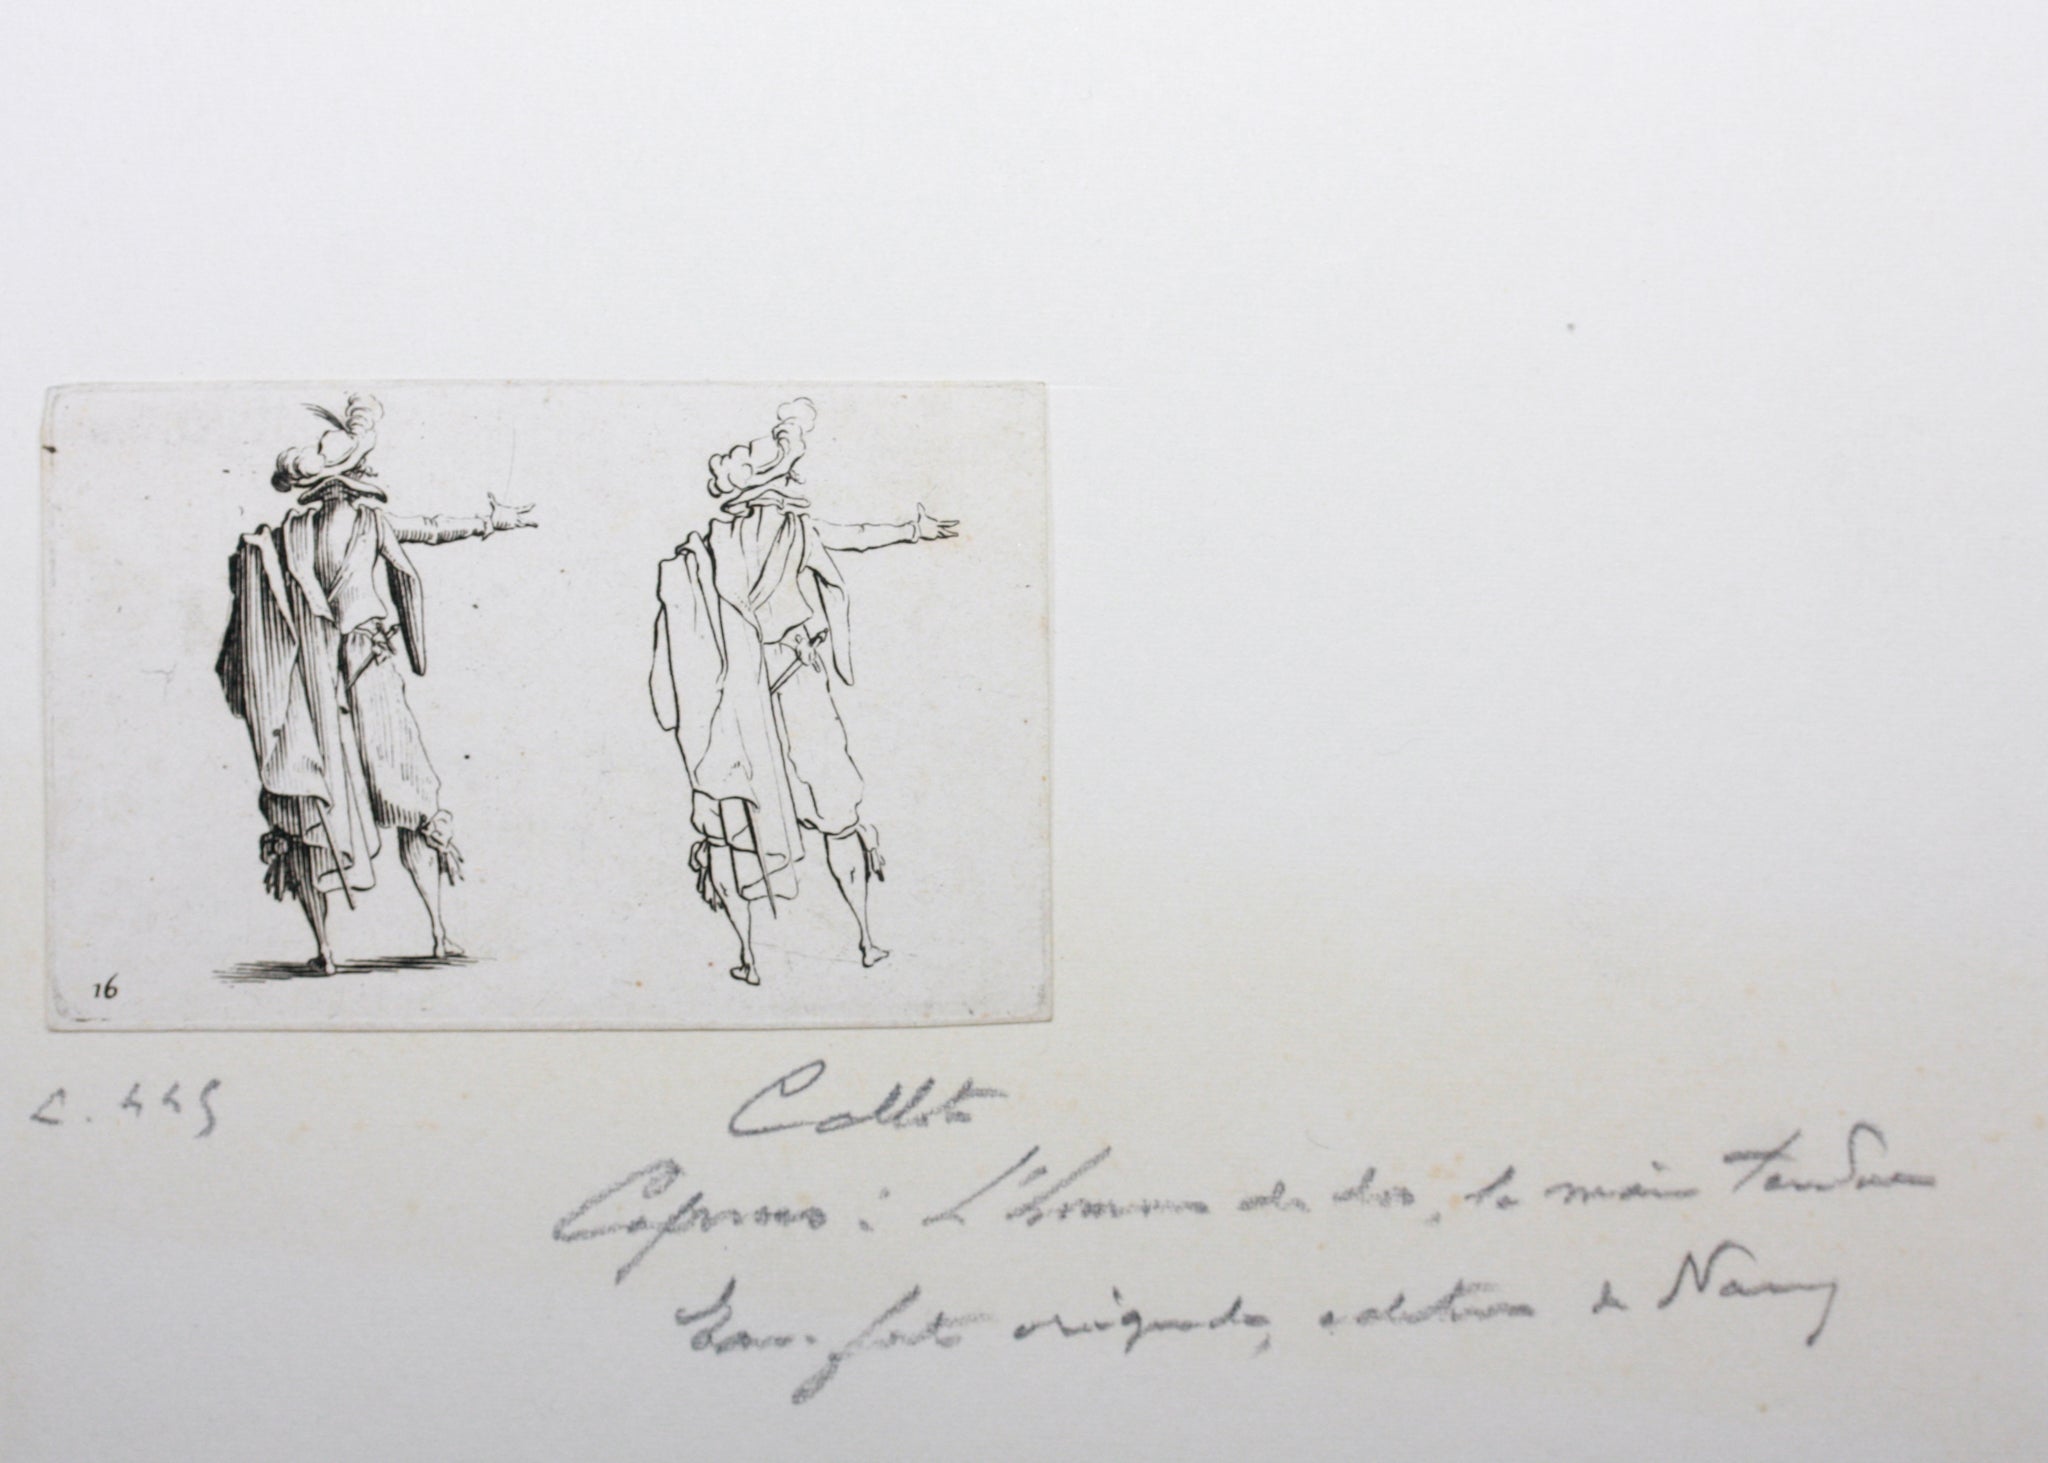 16
L. 445
Callot
Caprices : L'homme de dos, la main tendue
Eau-forte originale, edition de Nancy